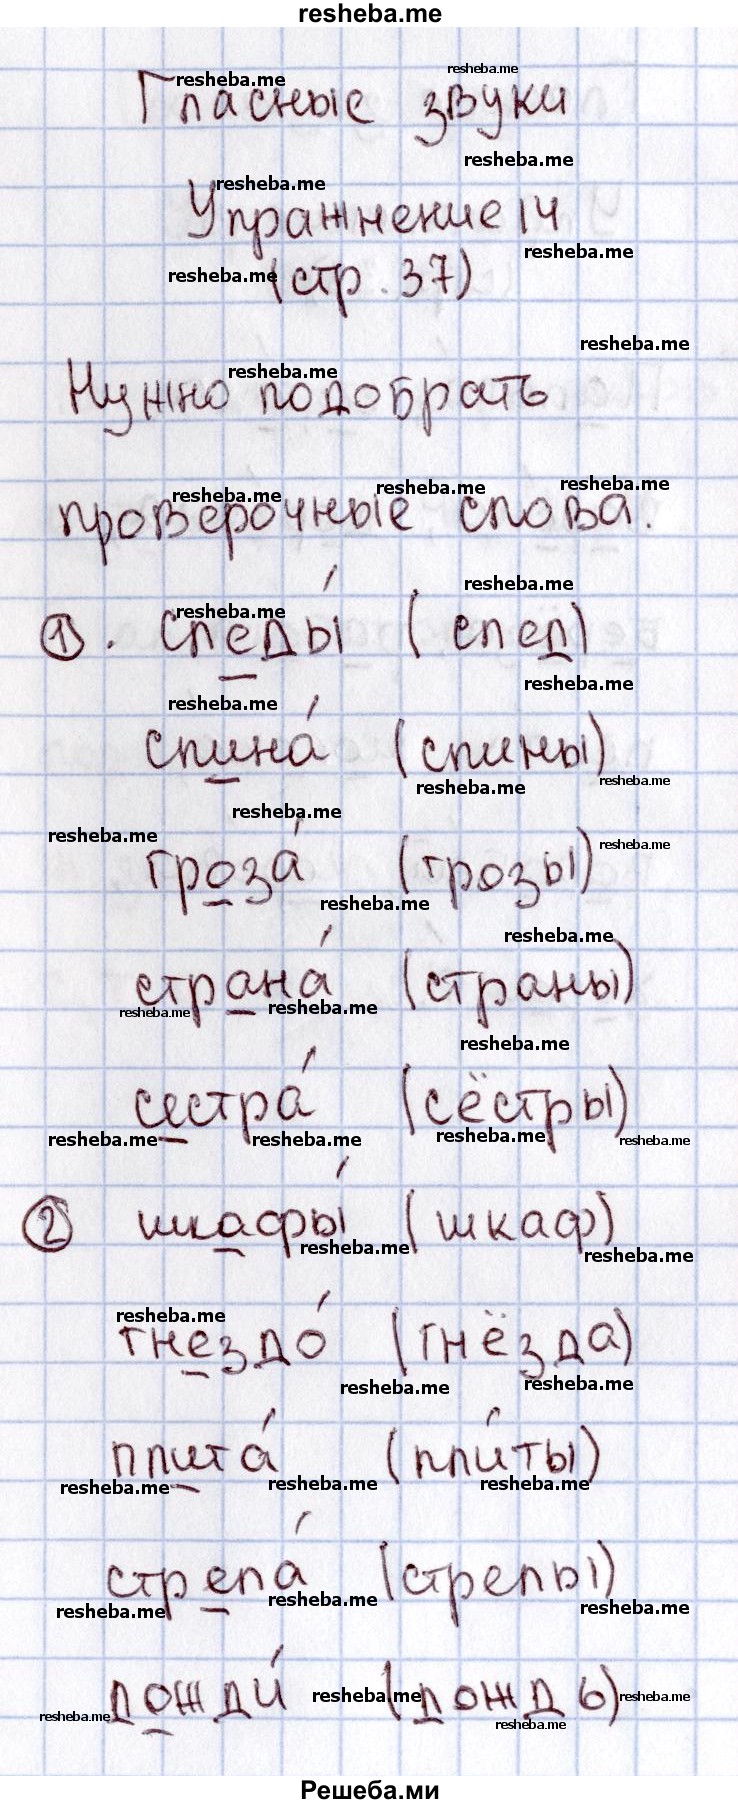 resheba.me
Гласные звуки
Упражнение 14
(стр. 37)
Нужно подобрать
проверочные слова.
1. следы́ (след)
спина́ (спины)
гроза́ (грозы)
страна́ (страны)
сестра́ (сёстры)
2 шкафы́ (шкаф)
гнездо́ (гнёзда)
плита́ (пли́ты)
стрела́ (стрелы)
дожди́ (дождь)
Решеба.ми